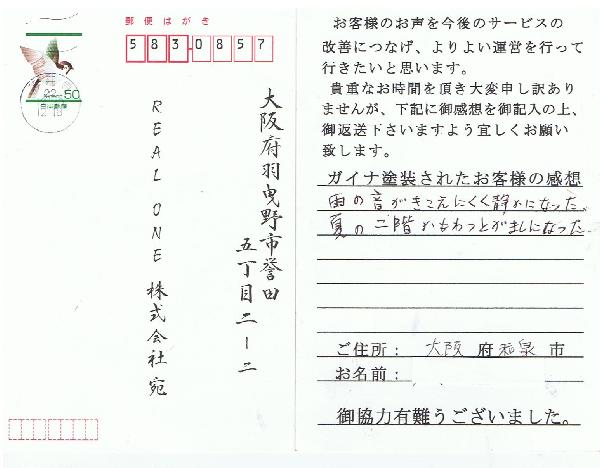 郵便はがき
583-0857
50
日本郵便
大阪府羽曳野市誉田
五丁目二ー二
REAL ONE 株式会社宛
お客様のお声を今後のサービスの
改善につなげ、よりよい運営を行って
行きたいと思います。
貴重なお時間を頂き大変申し訳あり
ませんが、下記に御感想を御記入の上、
御返送下さいますよう宜しくお願い
致します。
ガイナ塗装されたお客様の感想
雨の音がきこえにくく静かになった。
夏の二階がもわっとがましになった
ご住所： 大阪 府 和泉 市
お名前：
御協力有難うございました。